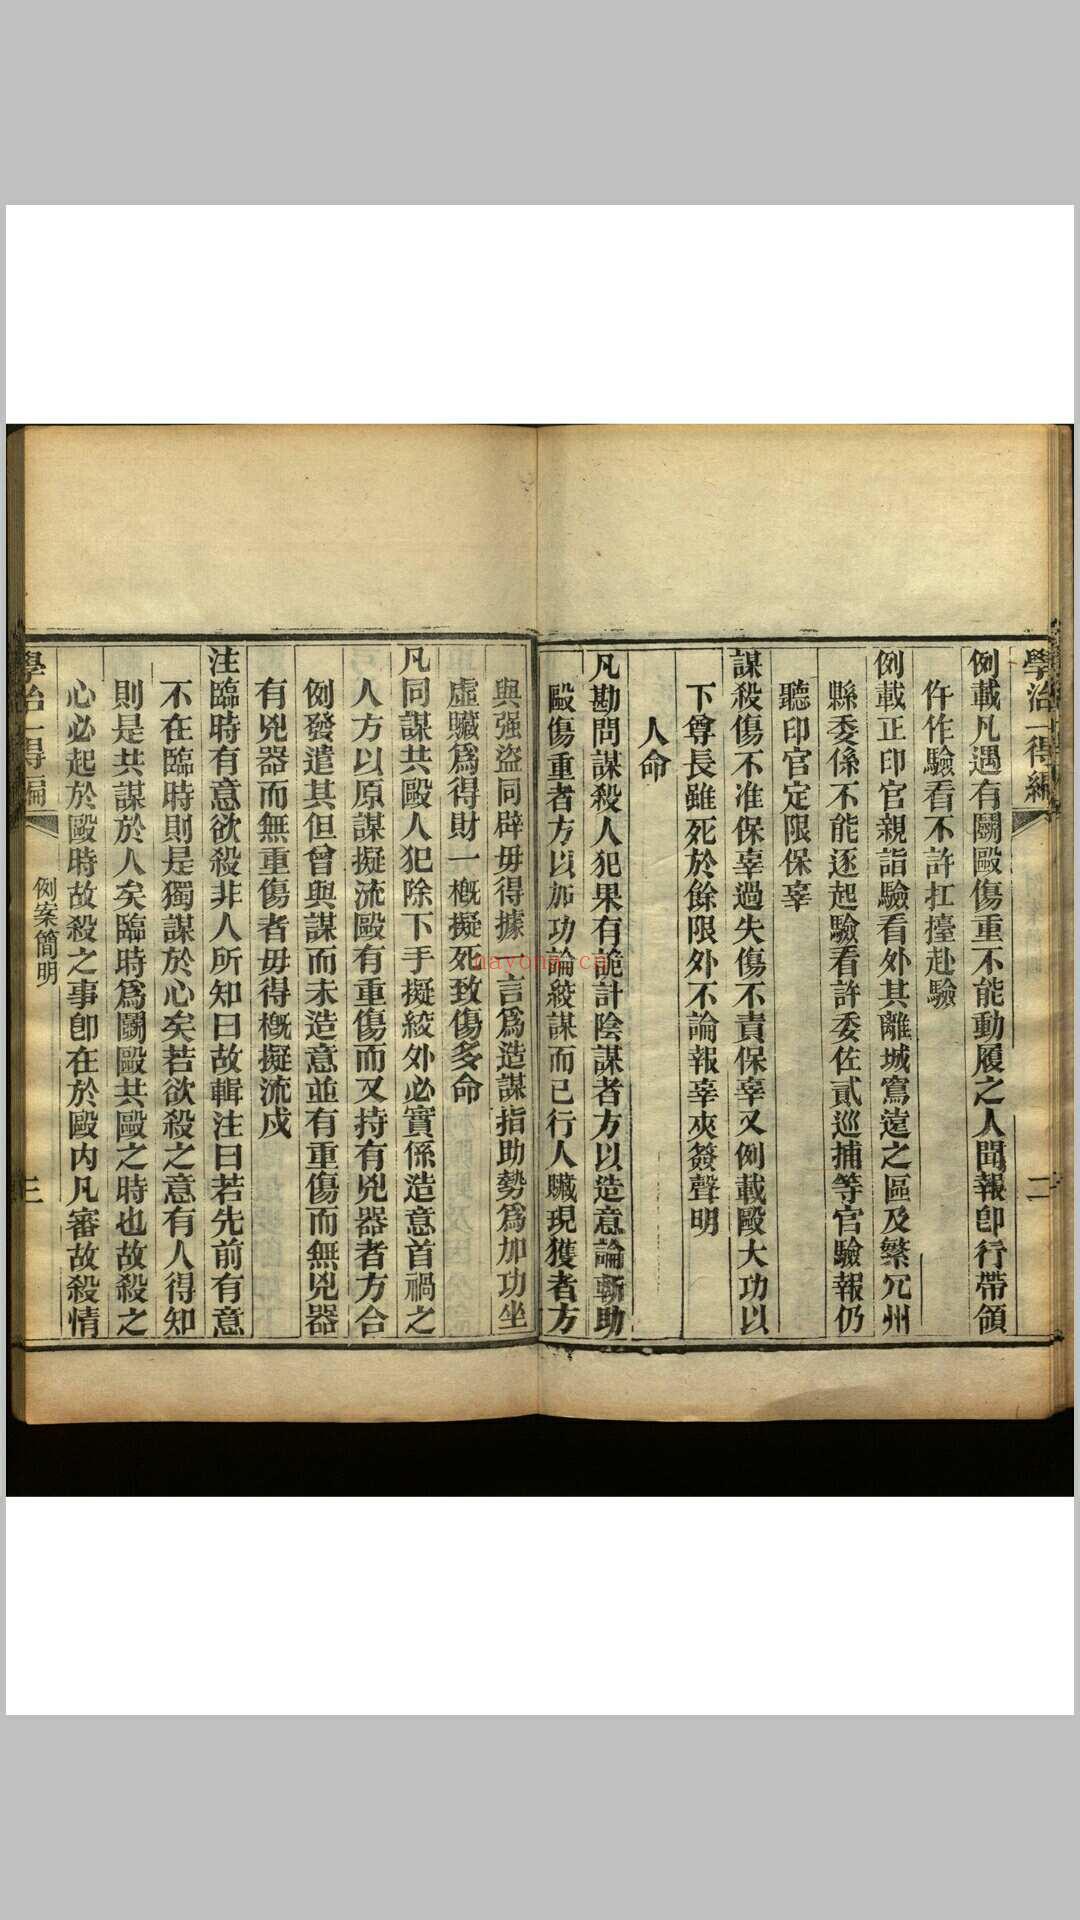 學治一得編
二
例載凡遇有鬭毆傷重不能動履之人聞報卽行帶領
仵作驗看不許扛擡赴驗
例載正印官親詣驗看外其離城窵遠之區及繁冗州
縣委係不能逐起驗看許委佐貳巡捕等官驗報仍
聽印官定限保辜
謀殺傷不准保辜過失傷不責保辜又例載毆大功以
下尊長雖死於餘限外不論報辜夾簽聲明
人命
凡勘問謀殺人犯果有詭計陰謀者方以造意論斬助
毆傷重者方以加功論絞謀而已行人贓現獲者方
與强盜同辟毋得據一言爲造謀指助勢爲加功坐
虛贓爲得財一槪擬死致傷多命
凡同謀共毆人犯除下手擬絞外必實係造意首禍之
人方以原謀擬流毆有重傷而又持有兇器者方合
例發遣其但曾與謀而未造意並有重傷而無兇器
有兇器而無重傷者毋得槪擬流戍
注臨時有意欲殺非人所知曰故輯注曰若先前有意
不在臨時則是獨謀於心矣若欲殺之意有人得知
則是共謀於人矣臨時爲鬭毆共毆之時也故殺之
心必起於毆時故殺之事卽在於毆內凡審故殺情
學治一得編
例案簡明
三
nayona.cn